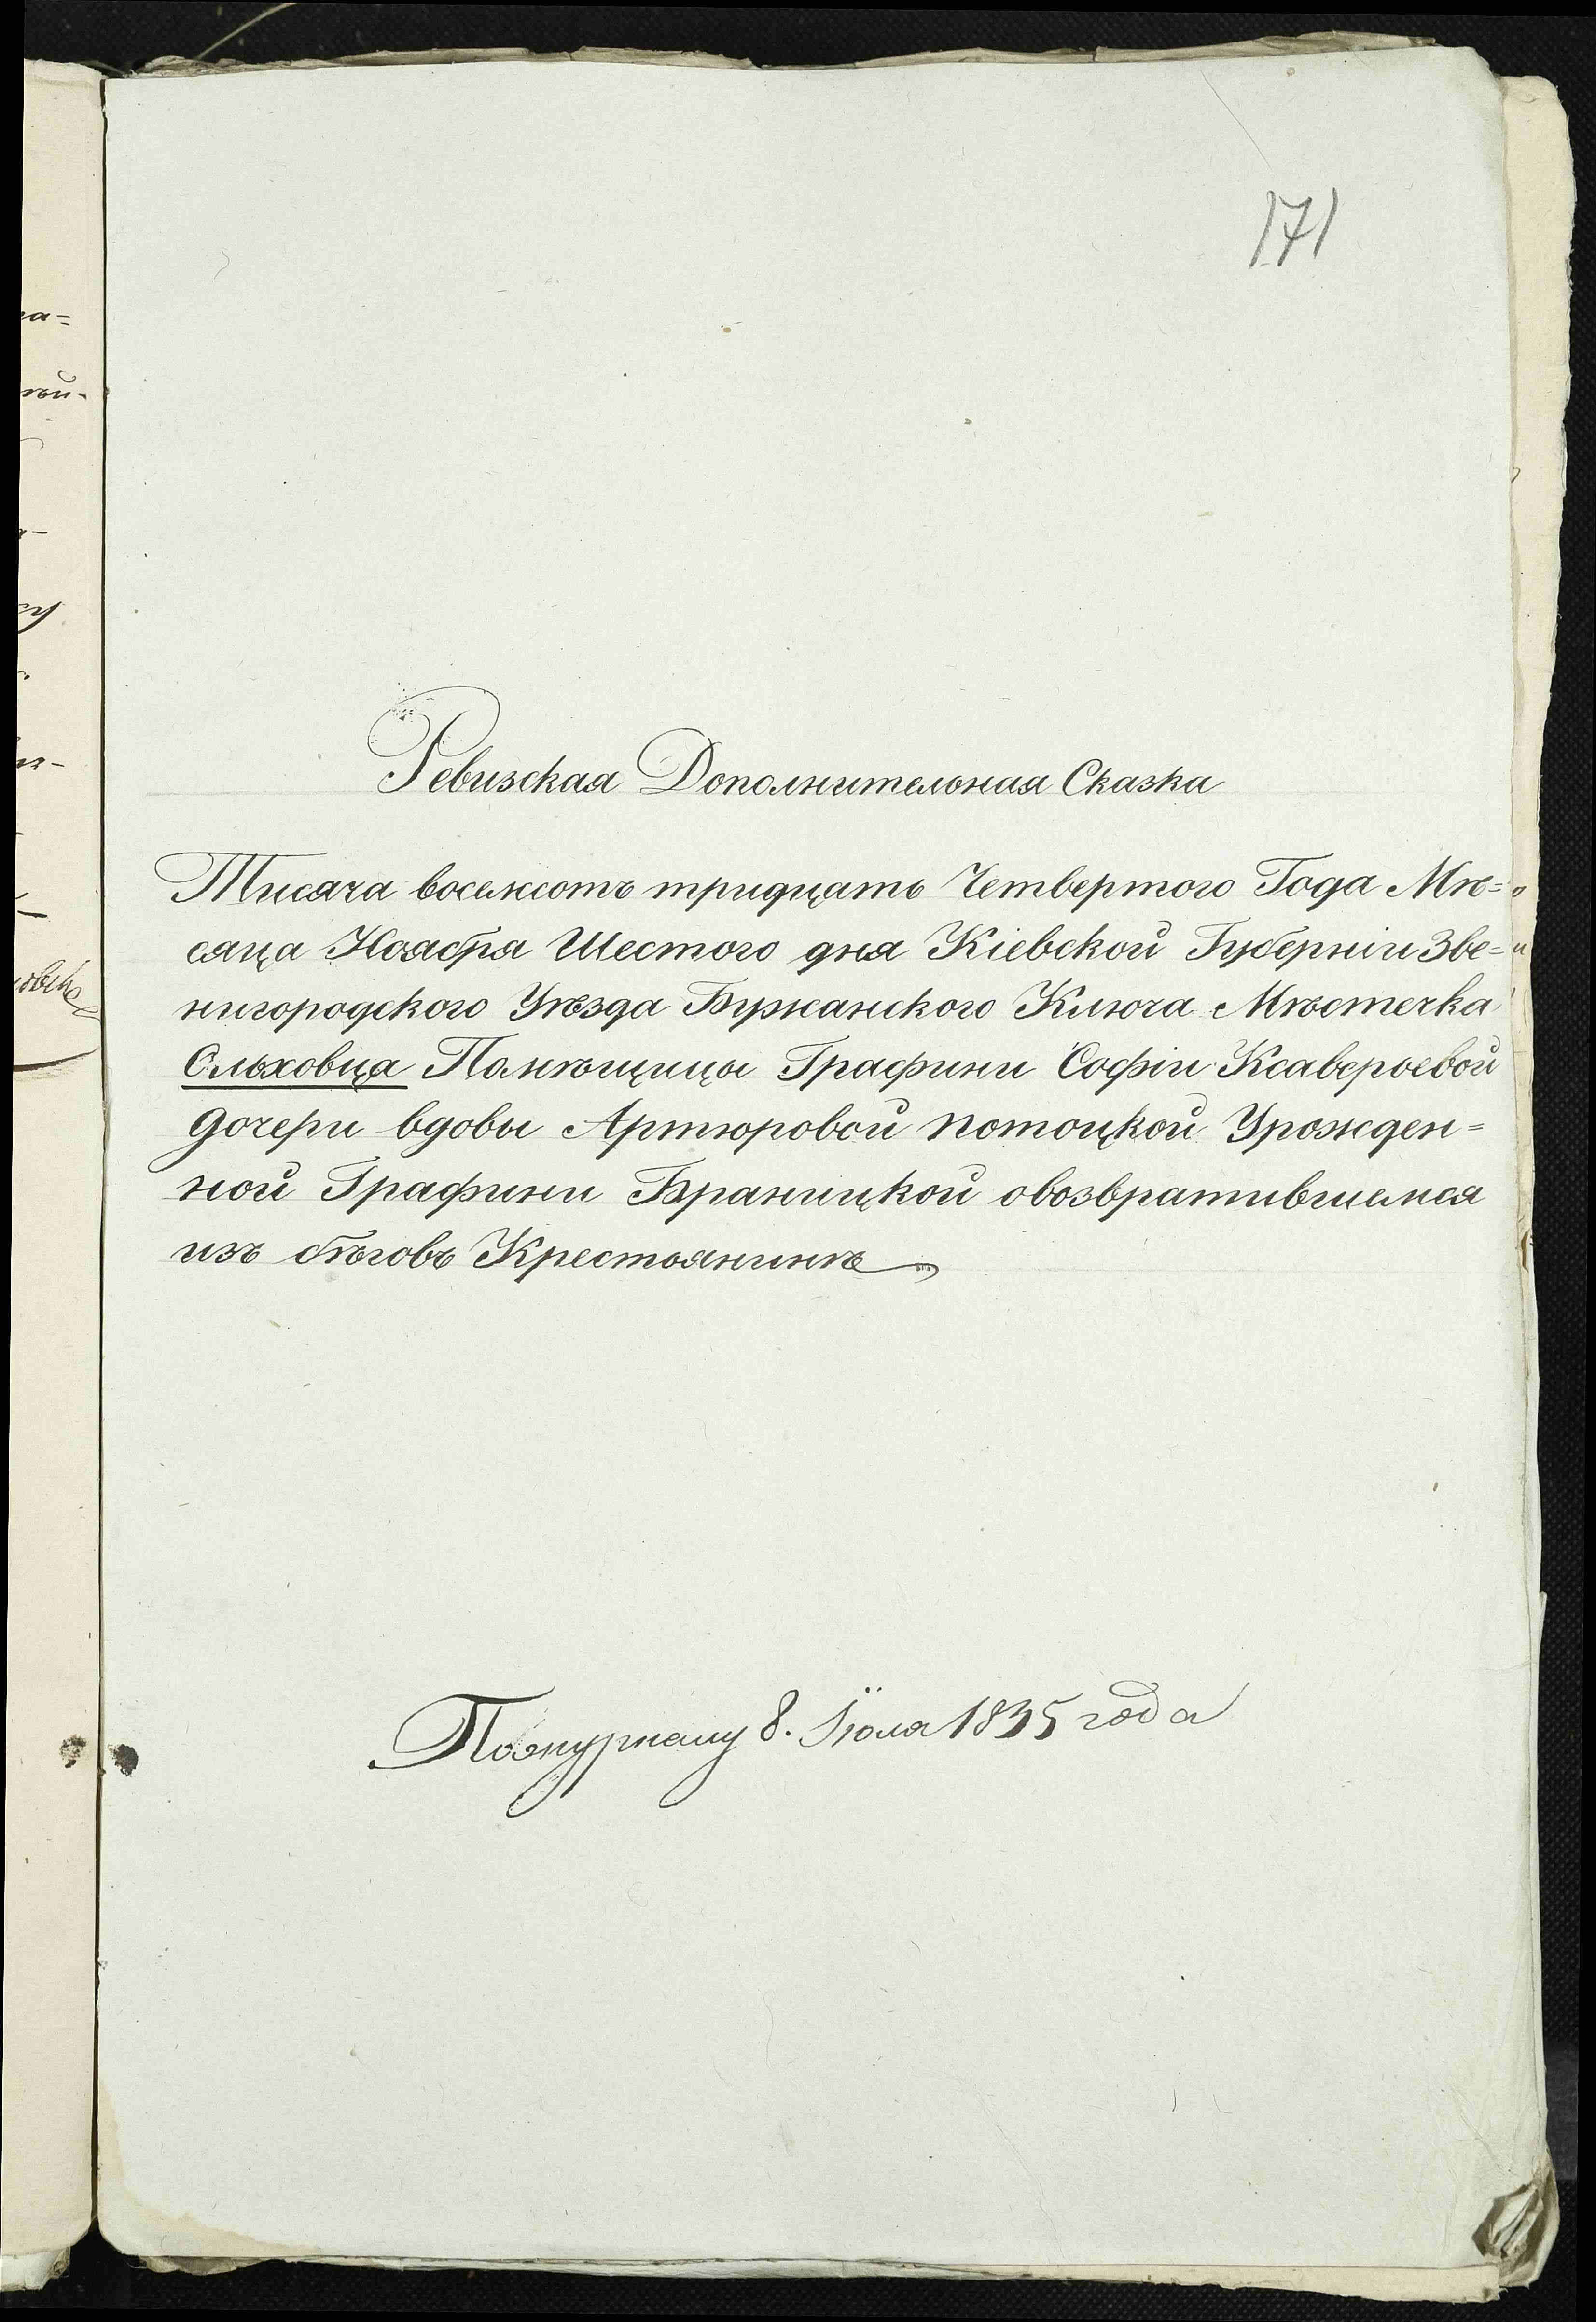 171
Ревизская Дополнительная Сказка
Тисяча восемсотъ тридцать Четвертого Года Мѣ=
сяца Ноября Шестого дня Кіевской Губерніи Зве=
нигородского Уѣзда Бужанского Ключа Мѣстечка
Ольховца Помѣщицы Графини Софіи Ксаверьевой
дочери вдовы Артюровой потоцкой Урожден=
ной Графини Браницкой овозвратившемся
изъ бѣговъ Крестьянинѣ
8. Іюля 1835 года